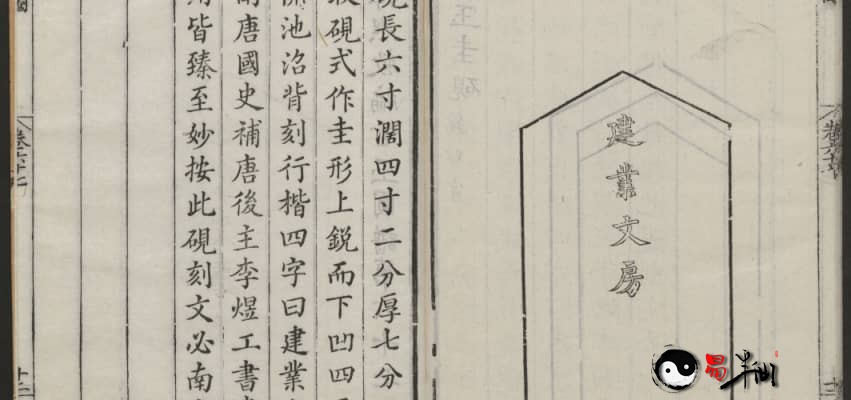 建業文房
長六寸濶四寸二分厚七分
硯式作圭形上鋭而下凹四
池沼背刻行楷四字曰建業
唐國史補唐後主李煜工書
皆臻至妙按此硯刻文必南
卷六十七